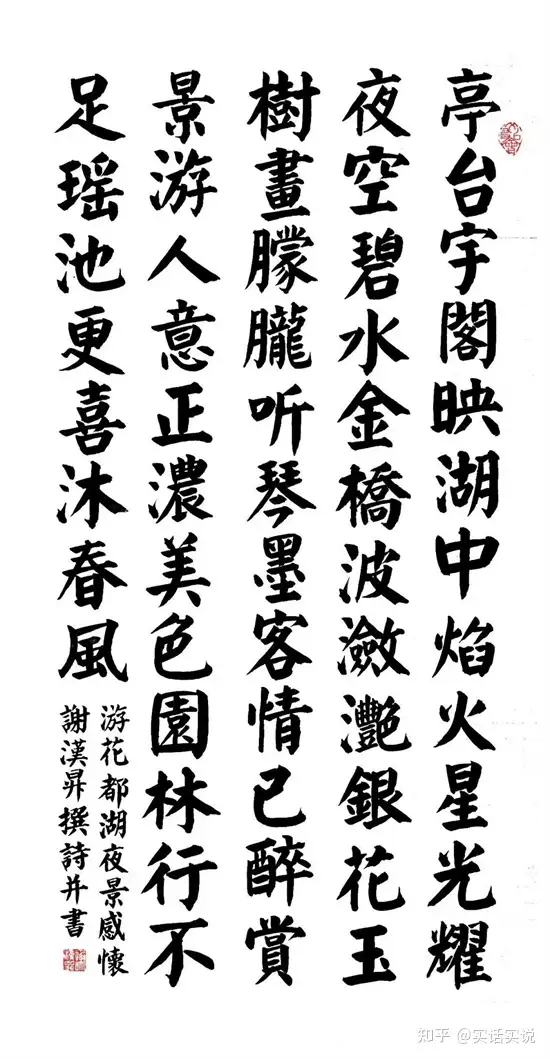 亭台宇閣映湖中焰火星光耀
夜空碧水金橋波瀲灩銀花玉
樹畫朦朧听琴墨客情已醉賞
景游人意正濃美色園林行不
足瑶池更喜沐春風
游花都湖夜景感懷
謝漢昇撰詩并書
知乎 @实话实说